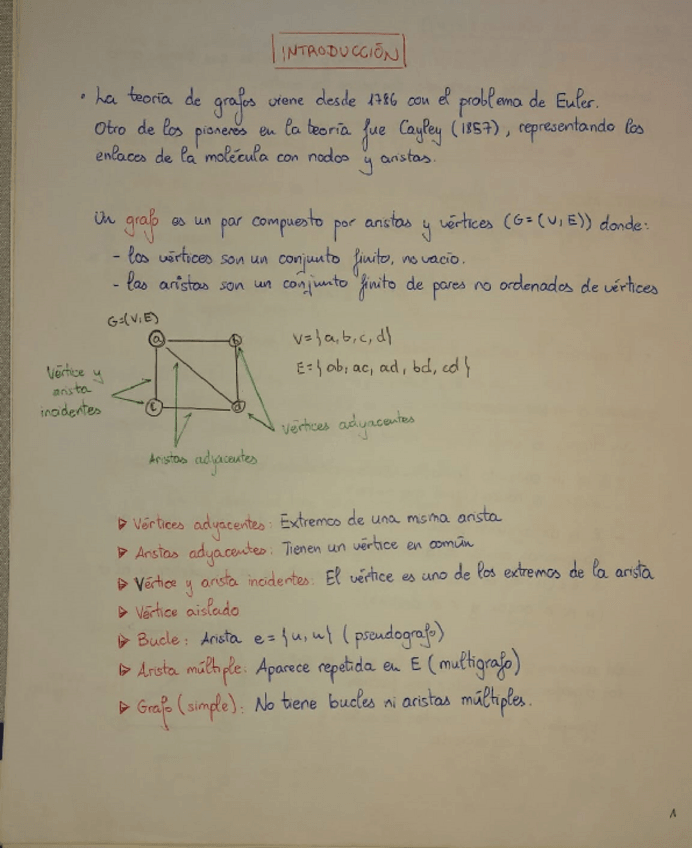 INTRODUCCIÓN
· La teoría de grafos viene desde 1786 con el problema de Euler.
Otro de los pioneros en la teoría fue Cayley (1857), representando los
enlaces de la molécula con nodos y aristas.
Un grafo es un par compuesto por aristas y vértices (G=(V,E)) donde:
- los vértices son un conjunto finito, no vacío.
- las aristas son un conjunto finito de pares no ordenados de vértices
G=(V,E)
a b
V={a,b,c,d}
E={ab, ac, ad, bd, cd}
Vértice y
arista
incidentes
c d
Vértices adyacentes
Aristas adyacentes
▷ Vértices adyacentes: Extremos de una misma arista
▷ Aristas adyacentes: Tienen un vértice en común
▷ Vértice y arista incidentes: El vértice es uno de los extremos de la arista
▷ Vértice aislado
▷ Bucle: Arista e={u,u} (pseudografo)
▷ Arista múltiple: Aparece repetida en E (multigrafo)
▷ Grafo (simple): No tiene bucles ni aristas múltiples.
1